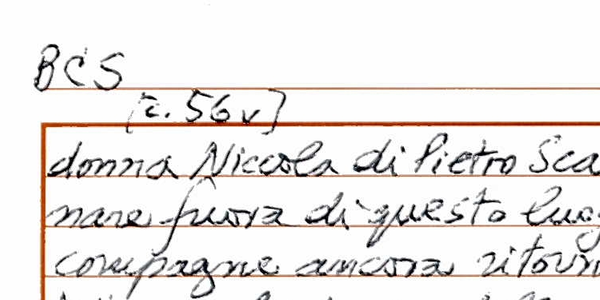 BCS
[c. 56v]
donna Niccola di Pietro Sca
nare fuora di questo luog
compagne ancora ritorn